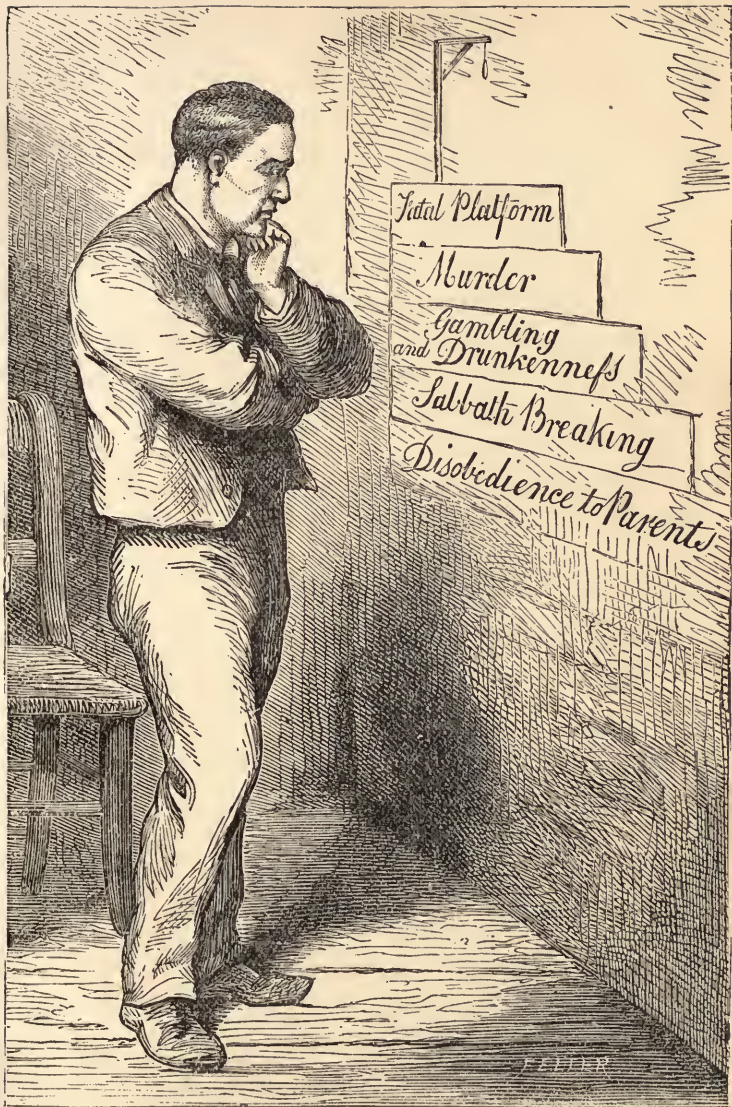 Fatal Platform
Murder
Gambling
and Drunkenneſs
Sabbath Breaking
Disobedience to Parents
FELTER